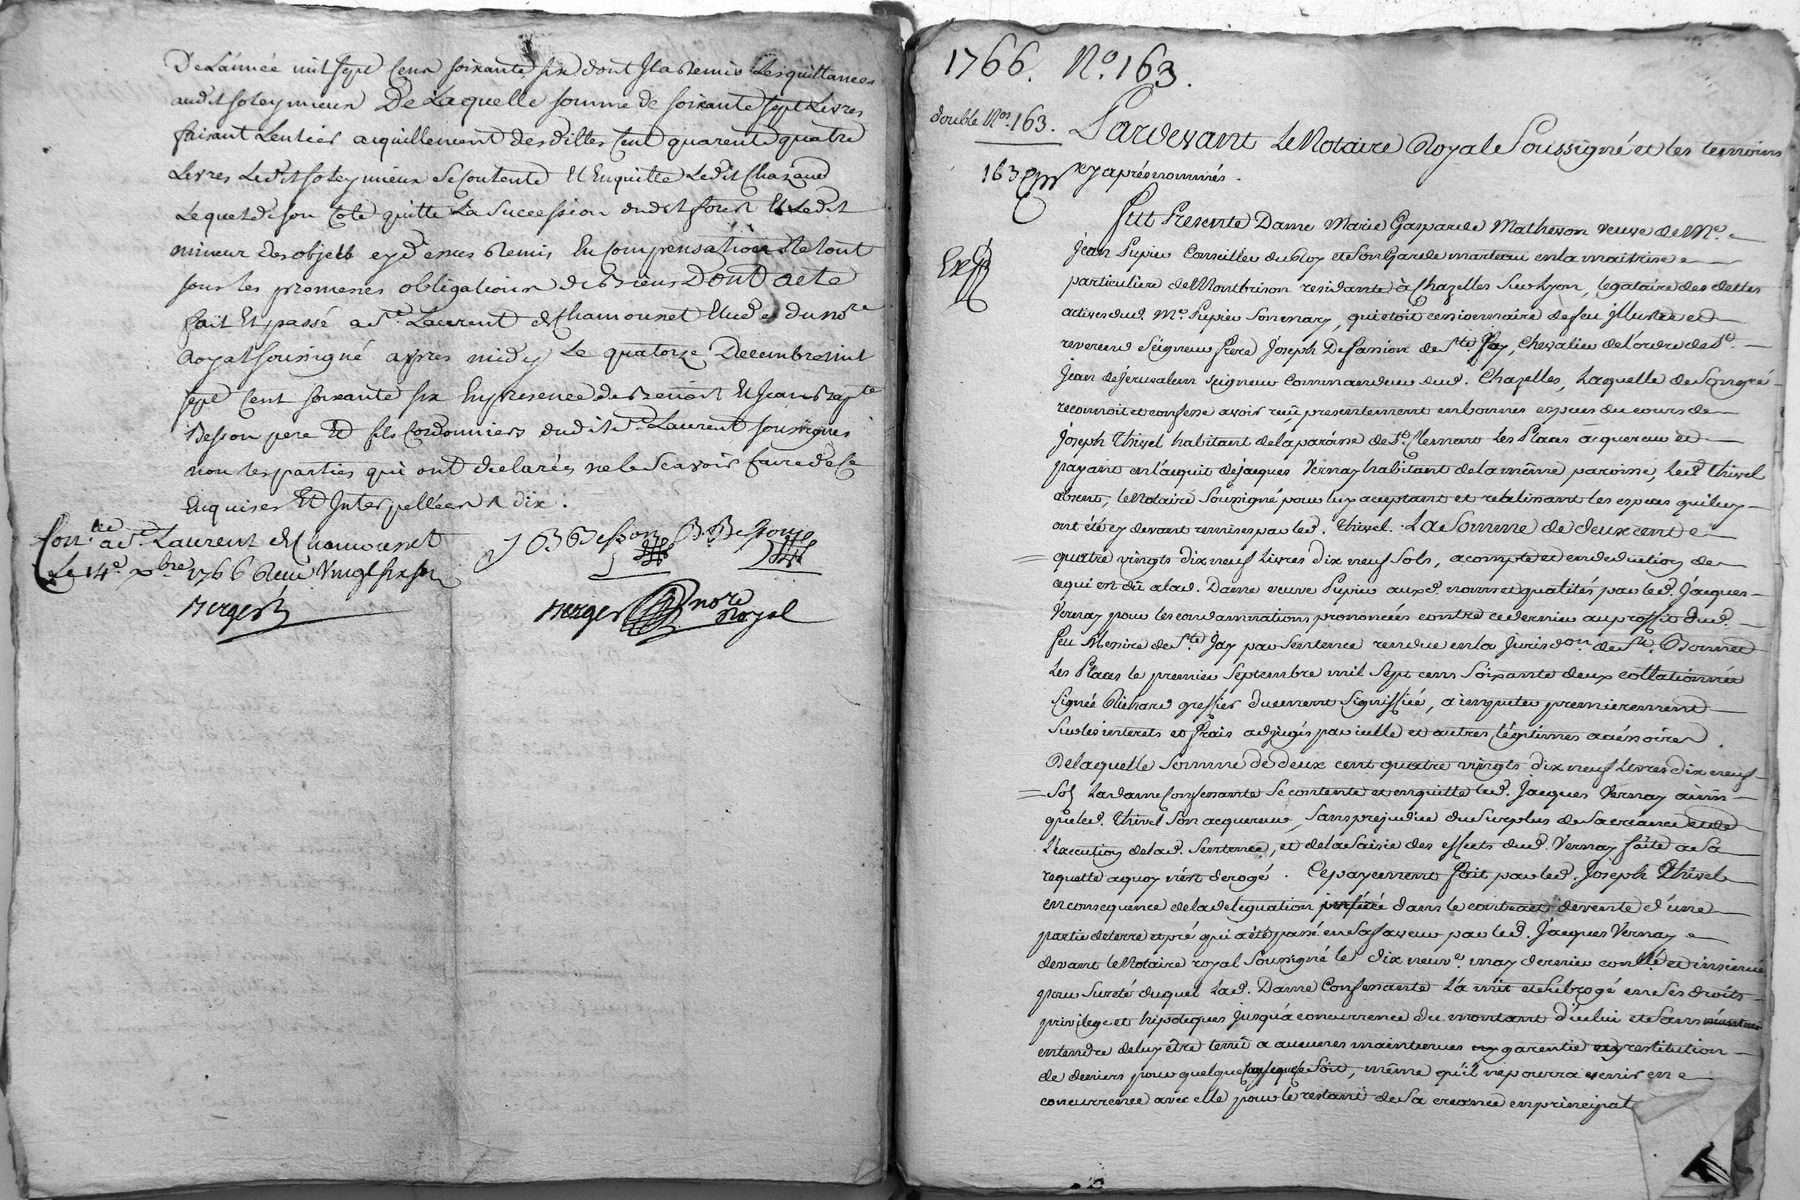 De L'année mil sept Cens soixante six dont Il a Remis Les quittances
audit soleymieux De Laquelle somme de soixante sept Livres
faisant L'entier acquittement desdittes Cent quarente quatre
Livres Ledit soleymieux se Contente Et Enquitte Ledit Chazaud
Lequel de son Coté quitte La Succession dudit Et Ledit
mineur des objets cy dessus Remis En Compensation Le tout
sous les promesses obligations de Biens Dont acte
fait Et passé a St. Laurent de Chamousset Etude du nore
Royal sousigné apres midy Le quatorze Decembre mil
sept Cent soixante six En presence de Benoist Et Jean Bapte
Besson pere Et fils Cordonniers dudit St. Laurent sousignés
non les parties qui ont declarées ne le Scavoir faire de Ce
Enquises Et Interpellées dix.
Conlé. a St. Laurent de Chamousset
Le 14e. xbre 1766 Reçu Vingt six sols
Berger
J B Besson B. Besson
Berger nore
Royal
1766. No. 163.
double Nos. 163.
Pardevant Le Notaire Royale Soussigné et les temoins
163
cy après nommés.
Fut Presente Dame Marie Gasparde Matheson veuve de Me.
Jean Pupier Conseiller du Roy et Son Garde marteau en la maitrise
particuliere de Montbrison residante à Chazelles Sur Lyon, legataire des dettes
actives dud. Me. Pupier Son mary, qui etoit cessionnaire de feu illustre et
reverend Seigneur frere Joseph De Sassion de Ste. Jay, Chevalier de l'ordre de St.
Jean de Jerusalem Seigneur Commandeur dud. Chazelles, Laquelle de Son gré
reconnoit et confesse avoir reçu presentement en bonnes especes du cours de
Joseph Thivel habitant de la paroisse de St. Clement Les Places acquereur et
payant en l'acquit de Jacques Vernay habitant de la même paroisse, Led. Thivel
absent, le Notaire Soussigné pour luy acceptant et rebelissant les especes qui luy
ont été cy devant remises par led. Thivel. La Somme de deux cent
quatre vingts dix neuf Livres dix neuf Sols, a compte et en deduction de
ce qui est dû a lad. Dame veuve Pupier auxd. noms et qualités par led. Jacques
Vernay pour les condamnations prononcées contre ce dernier au proffit dud.
feu Messire de Ste. Jay par Sentence rendue en la Jurisdon. de St. Bonnet
Les Places le premier Septembre mil Sept cens Soixante deux collationnée
Signée Richard greffier duement Signiffiée, a imputer premierement
Sur les interets et frais adjugés par icelle et autres légitimes accéssoires.
De laquelle Somme de deux cent quatre vingts dix neuf Livres dix neuf
Sols Lad. dame Confessante Se contente et en quitte led. Jacques Vernay ainsi
que led. Thivel Son acquereur, Sans prejudice du Surplus de Sa creance et de
L'execution de lad. Sentence, et de la Saisie des effects dud. Vernay faite a Sa
requette a quoy n'est derogé. Ce payement fait par led. Joseph Thivel
en consequence de la delegation inserée dans le contract de vente d'une
partie de terre et pré qui a été passé en Sa faveur par led. Jacques Vernay
devant le Notaire royal Soussigné le dix neuve. may dernier conllé. et insinué
pour Sureté duquel Lad. Dame Confessante L'a mis et Subrogé en Ses droits
privilege et hipoteques Jusqu'a concurrence du montant d'icelui et Sans
entendre de luy être tenuë a aucunes maintenues ny garentie ny restitution
de deniers pour quelque cause que ce Soit, même qu'il ne pourra venir en
concurrence avec elle pour le restant de Sa creance en principal